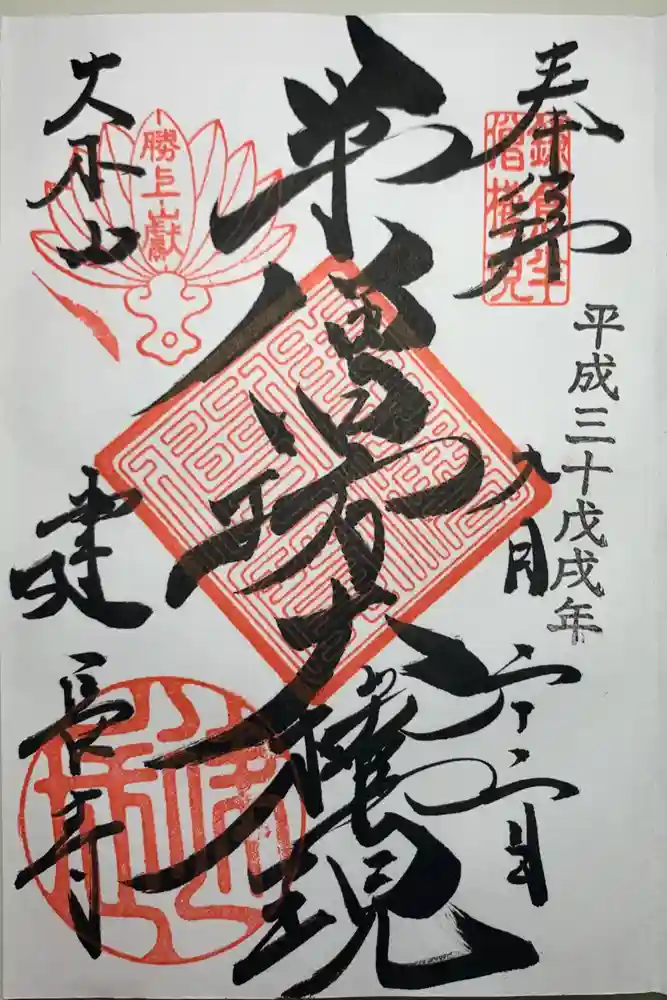 奉拝
鎌倉半
僧權現
平成三十戊戌年
九月
半僧坊大權現
勝上巘
大本山
建長寺